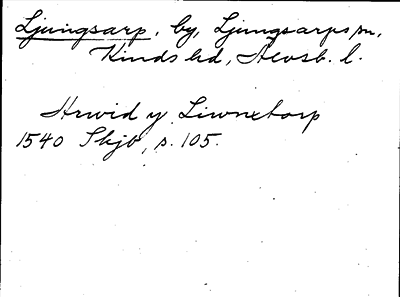 Ljungsarp, by, Ljungsarps sn,
Kinds hd, Älvsb. l.
Hrwid y Liwnxtorp
1540 Skjb, s. 105.